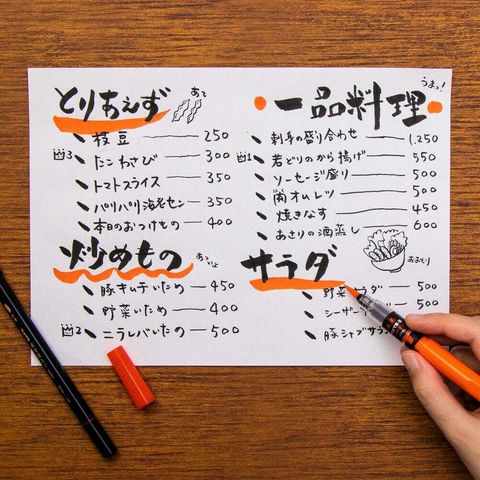 とりあえず あて
枝豆 250
3 たこわさび 300
トマトスライス 350
パリパリ海老セン 350
本日のおつけもの 400
炒めもの
豚キムチいため 450
野菜いため 400
2 ニラレバいため 500
一品料理 うまっ!
刺身の盛り合わせ 1,250
1 若どりのから揚げ 550
ソーセージ盛り 500
オムレツ 500
焼きなす 450
あさりの酒蒸し 600
サラダ おおもり
野菜サラダ 500
シーザー 500
豚シャブサラ